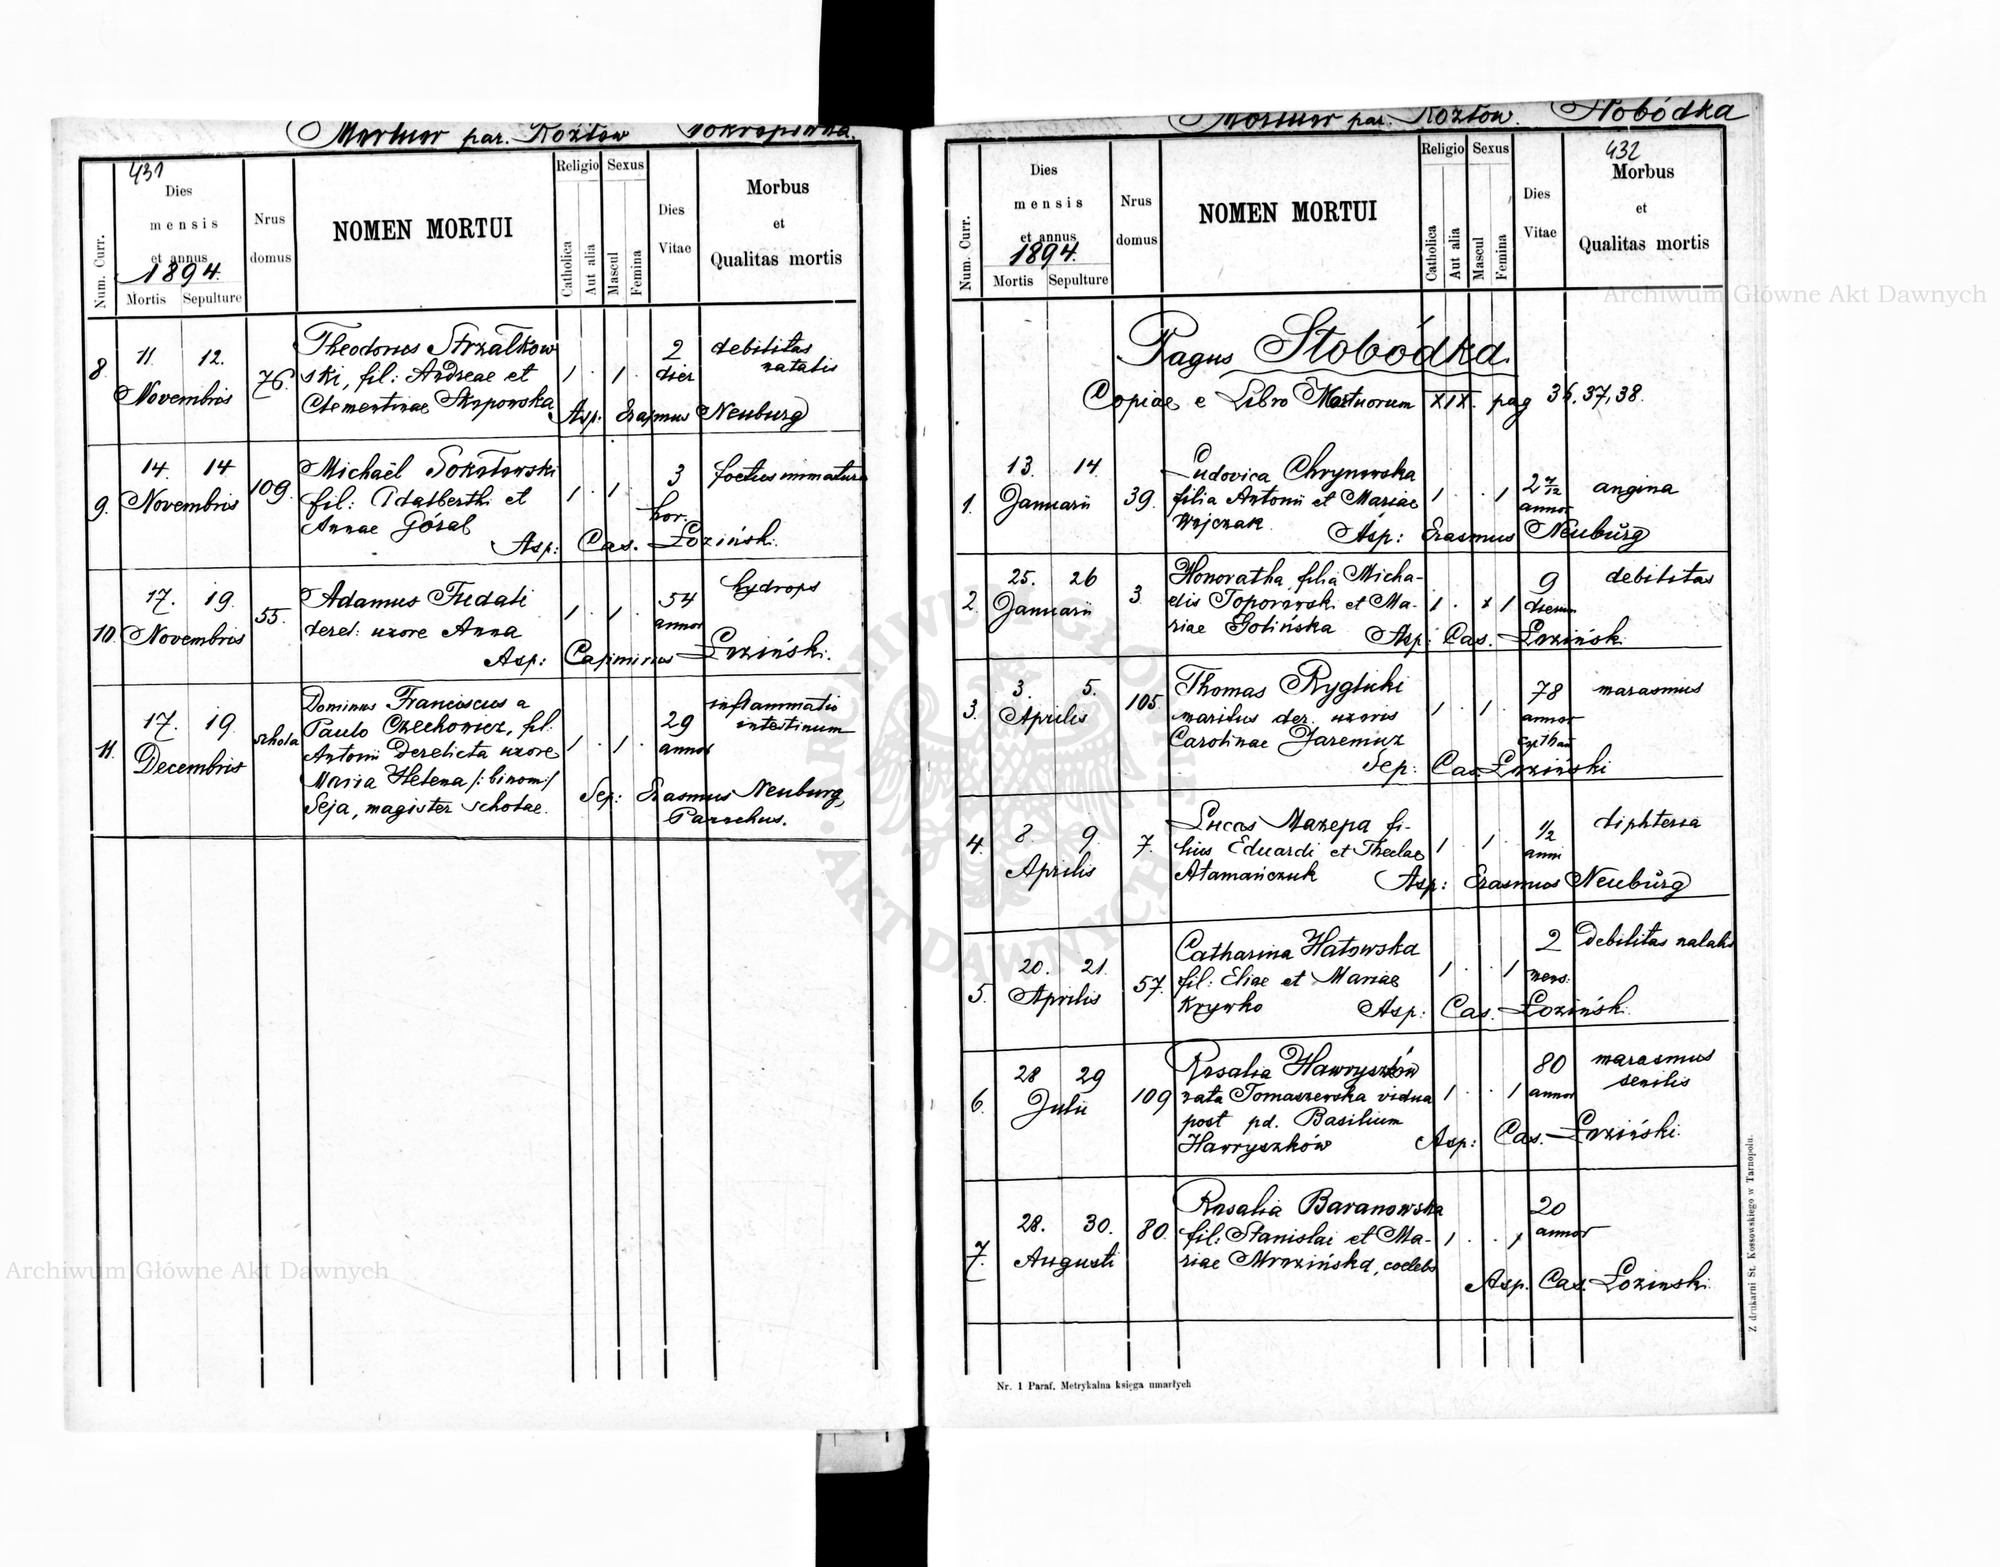 Mortuor par. Kozłow Pokropiwna.
431
Num. Curr.
Dies
mensis
et annus
1894.
Mortis Sepulture
Nrus
domus
NOMEN MORTUI
Religio Sexus
Catholica
Aut alia
Mascul
Femina
Dies
Vitae
Morbus
et
Qualitas mortis
8. 11 12. Novembris 76.
Theodorus Strzałkow
ski, fil: Andreae et
Clementinae Skrpowska
1 . 1 .
2
dier
debilitas
natalis
Asp: Erasmus Neuburg
9. 14. 14 Novembris 109.
Michaël Sokołowski
fil: Adalberthi et
Annae Góral
1 . 1 .
3
hor.
foetus immaturus
Asp: Cas. Łoziński.
10. 17. 19. Novembris 55.
Adamus Fudali
derel: uxore Anna
1 . 1 .
54
annor
hydrops
Asp: Casimirus Łoziński.
11. 17. 19. Decembris schola
Dominus Franciscus a
Paulo Czechowicz, fil.
Antonii derelicta uxore
Maria Helena /: binom:/
Seja, magister scholae.
1 . 1 .
29
annor
inflammatio
intestinum
Sep: Erasmus Neuburg,
Parochus.
Mortuor par. Kozłow. Słobódka
432
Num. Curr.
Dies
mensis
et annus
1894.
Mortis Sepulture
Nrus
domus
NOMEN MORTUI
Religio Sexus
Catholica
Aut alia
Mascul
Femina
Dies
Vitae
Morbus
et
Qualitas mortis
Pagus Słobódka.
Copiae e Libro Mortuorum XIX. pag 36, 37, 38.
1. 13. 14. Januarii 39.
Ludovica Chrynowska
filia Antonii et Mariae
Wojczak.
1 . . 1
2 7/12
annor
angina
Asp: Erasmus Neubŭrg
2. 25. 26 Januarii 3.
Honoratha filia Micha-
elis Toporowski et Ma-
riae Golińska
1 . x 1
9
dierum
debilitas
Asp: Cas. Łoziński.
3. 3. 5. Aprilis 105.
Thomas Ryglicki
maritus der. uxoris
Carolinae Jaremuz
1 . 1 .
78
annor
marasmus
Sep: Cas. Łoziński
4. 8. 9. Aprilis 7.
Lucas Mazepa fi-
lius Eduardi et Theclae
Atamańczuk
1 . 1 .
1/2
anni
diphteria
Asp: Erasmus Neubŭrg
5. 20. 21. Aprilis 57.
Catharina Hatowska
fil: Eliae et Mariae
Krywko
1 . . 1
2
mens.
debilitas natalis
Asp: Cas. Łoziński.
6. 28 29 Julii 109
Rosalia Hawryszków
nata Tomaszewska vidua
post pd. Basilium
Hawryszków
1 . . 1
80
annor
marasmus
senilis
Asp: Cas. Łoziński.
7. 28. 30. Augusti 80.
Rosalia Baranowska
fil: Stanislai et Ma-
riae Mrozińska, coelebs
1 . . 1
20
annor
Asp. Cas. Łozinski.
Nr. 1 Paraf. Metrykalna księga umarłych
Z drukarni St. Kossowskiego w Tarnopolu.
Archiwum Główne Akt Dawnych
Archiwum Główne Akt Dawnych
ARCHIWUM GŁÓWNE
AKT DAWNYCH